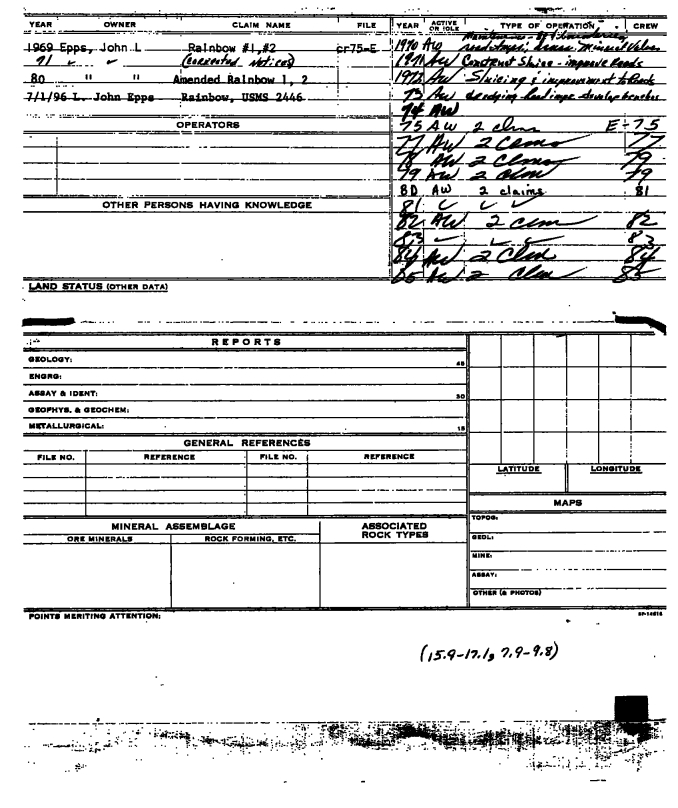 YEAR OWNER CLAIM NAME FILE
1969 Epps, John L Rainbow #1,#2 cr75-E
71 " " (corrected notices)
80 " " Amended Rainbow 1, 2
7/1/96 L. John Epps Rainbow, USMS 2446
OPERATORS
OTHER PERSONS HAVING KNOWLEDGE
LAND STATUS (OTHER DATA)
YEAR ACTIVE OR IDLE TYPE OF OPERATION CREW
1970 AW Mineral Values
1971 AW Construct Sluice - improve Roads
1972 AW Sluicing & improvement to Roads
73 AW develop benches
74 AW
75 AW 2 clms E-75
77 AW 2 clms 77
78 AW 2 Clms 79
79 AW 2 clm 79
80 AW 2 claims 81
81 " " "
82 AW 2 clm 82
83 " " " 83
84 AW 2 Clm 84
85 AW 2 Clm 85
REPORTS
GEOLOGY: 45
ENGRG:
ASSAY & IDENT: 30
GEOPHYS. & GEOCHEM:
METALLURGICAL: 15
GENERAL REFERENCES
FILE NO. REFERENCE FILE NO. REFERENCE
MINERAL ASSEMBLAGE
ORE MINERALS ROCK FORMING, ETC.
ASSOCIATED
ROCK TYPES
LATITUDE LONGITUDE
MAPS
TOPOG:
GEOL:
MINE:
ASSAY:
OTHER (& PHOTOS)
POINTS MERITING ATTENTION:
(15.9-17.1, 7.9-9.8)